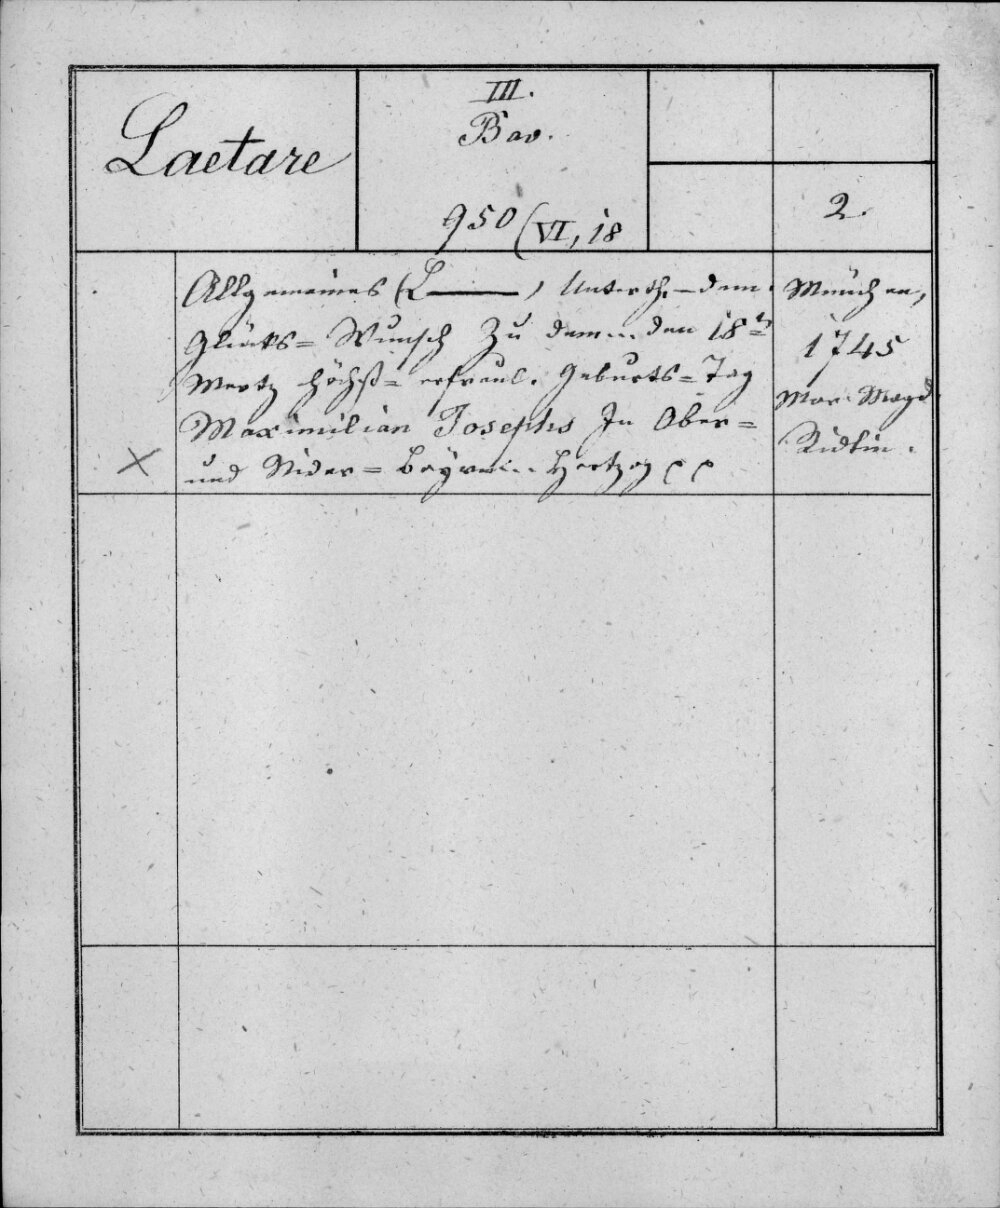 Laetare
III.
Bav.
950 (VI, 18
2.
Allgemeines (L———) Unterth.–dem.
Glücks= Wunsch Zu dem... den 18ᵗ
Mertz höchst= erfreul. Geburts=Tag
Maximilian Josephs In Ober=
und Nider= Bayrn... Hertzog
München,
1745
Mar. Magd.
Ridlin.